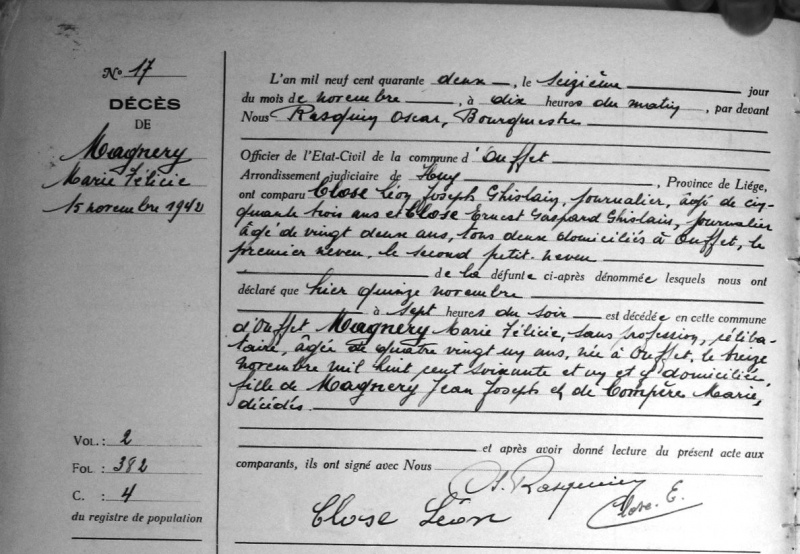 N° 17
DÉCÈS
DE
Magnery
Marie Félicie
15 novembre 1942
L'an mil neuf cent quarante deux, le seizième jour
du mois de novembre, à dix heures du matin, par devant
Nous Rasquin Oscar, Bourgmestre
Officier de l'Etat-Civil de la commune d'Ouffet
Arrondissement judiciaire de Huy, Province de Liége,
ont comparu Close Léon Joseph Ghislain, journalier, âgé de cin-
quante trois ans et Close Ernest Gaspard Ghislain, journalier
âgé de vingt deux ans, tous deux domiciliés à Ouffet, le
premier neveu, le second petit-neveu
de la défunte ci-après dénommée lesquels nous ont
déclaré que hier quinze novembre
à sept heures du soir est décédée en cette commune
d'Ouffet Magnery Marie Félicie, sans profession, céliba-
taire, âgée de quatre vingt un ans, née à Ouffet, le treize
novembre mil huit cent soixante et un et y domiciliée,
fille de Magnery Jean Joseph et de Compère Marie,
décédés.
et après avoir donné lecture du présent acte aux
comparants, ils ont signé avec Nous
O. Rasquin
Close Léon
Close. E.
VOL.: 2
FOL: 382
C. : 4
du registre de population